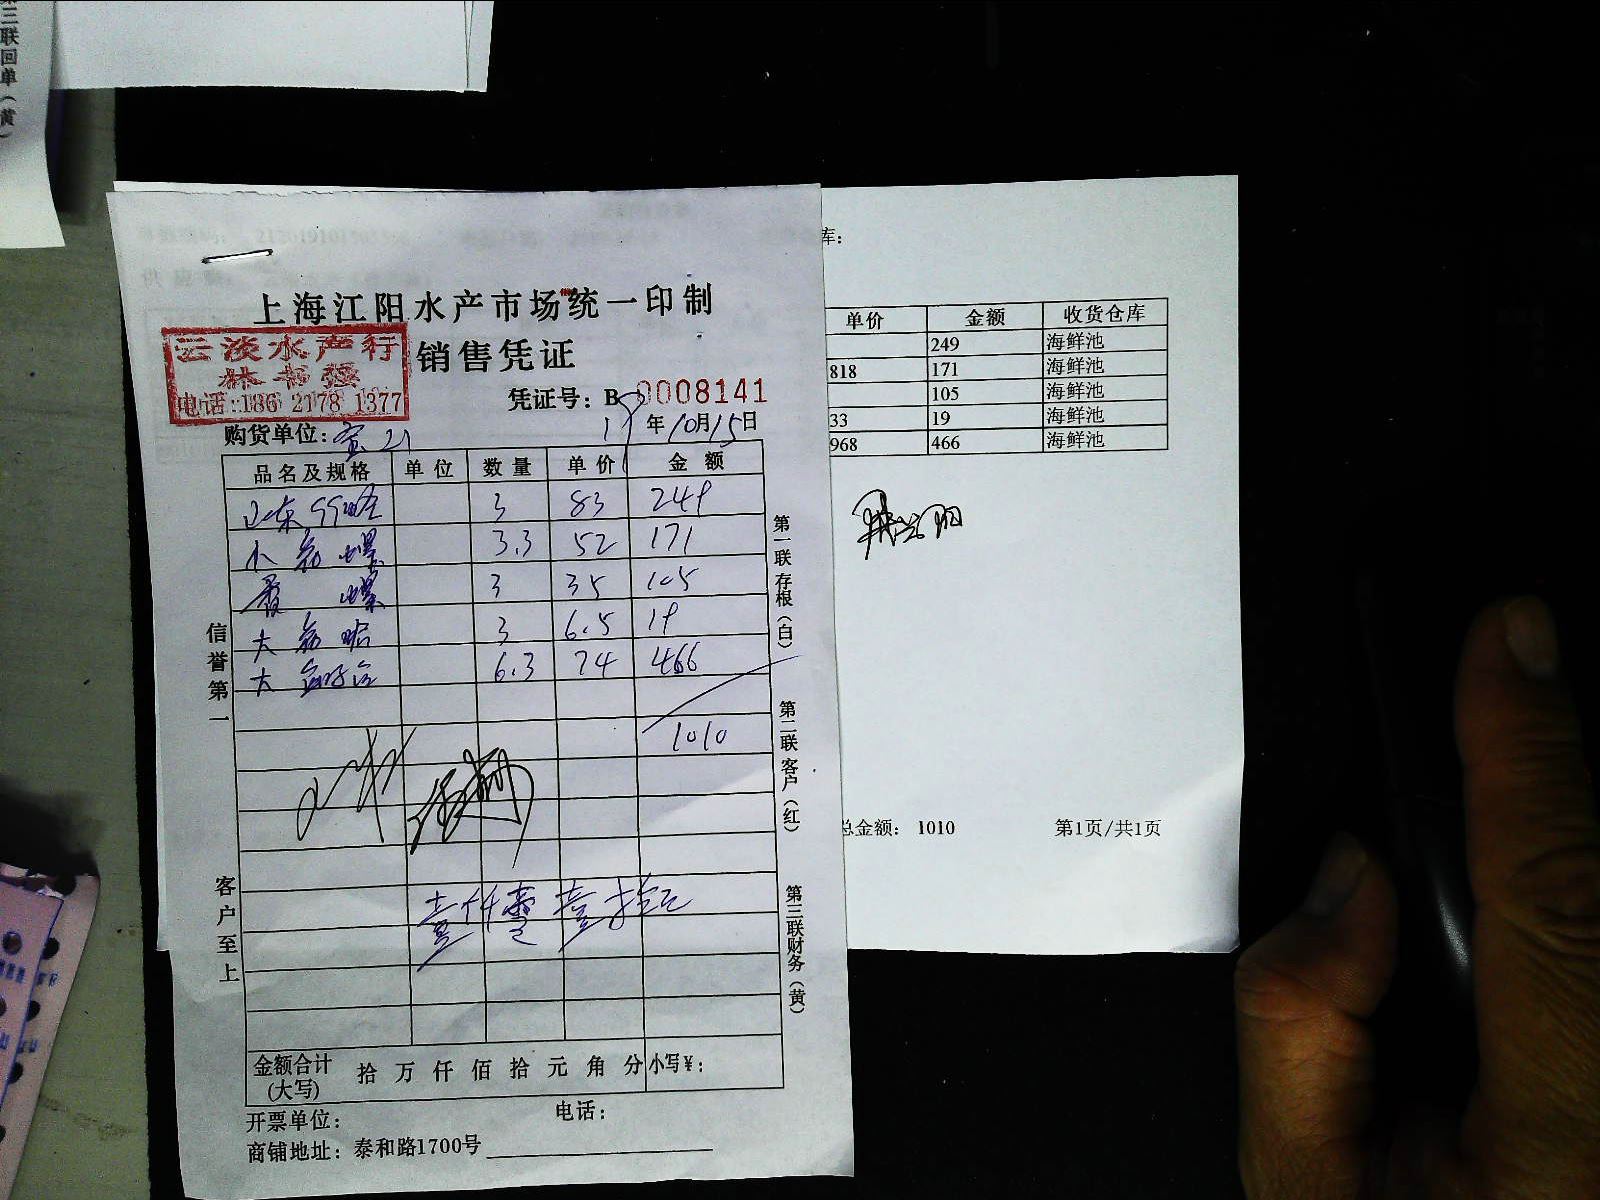 第三联回单（黄）
上海江阳水产市场统一印制
云淡水产行
林书强
电话:186 2178 1377
销售凭证
凭证号：B 0008141
购货单位：
19年10月15日
品名及规格 单位 数量 单价 金额
山东 3 83 249
小 螺 3.3 52 171
香 螺 3 35 105
大 3 6.5 19
大 6.3 74 466
1010
壹仟零壹拾元
金额合计(大写) 拾万仟佰拾元角分 小写¥:
开票单位： 电话：
商铺地址：泰和路1700号
信誉第一
客户至上
第一联存根（白）
第二联客户（红）
第三联财务（黄）
库：
单价 金额 收货仓库
249 海鲜池
818 171 海鲜池
105 海鲜池
33 19 海鲜池
968 466 海鲜池
总金额： 1010 第1页/共1页